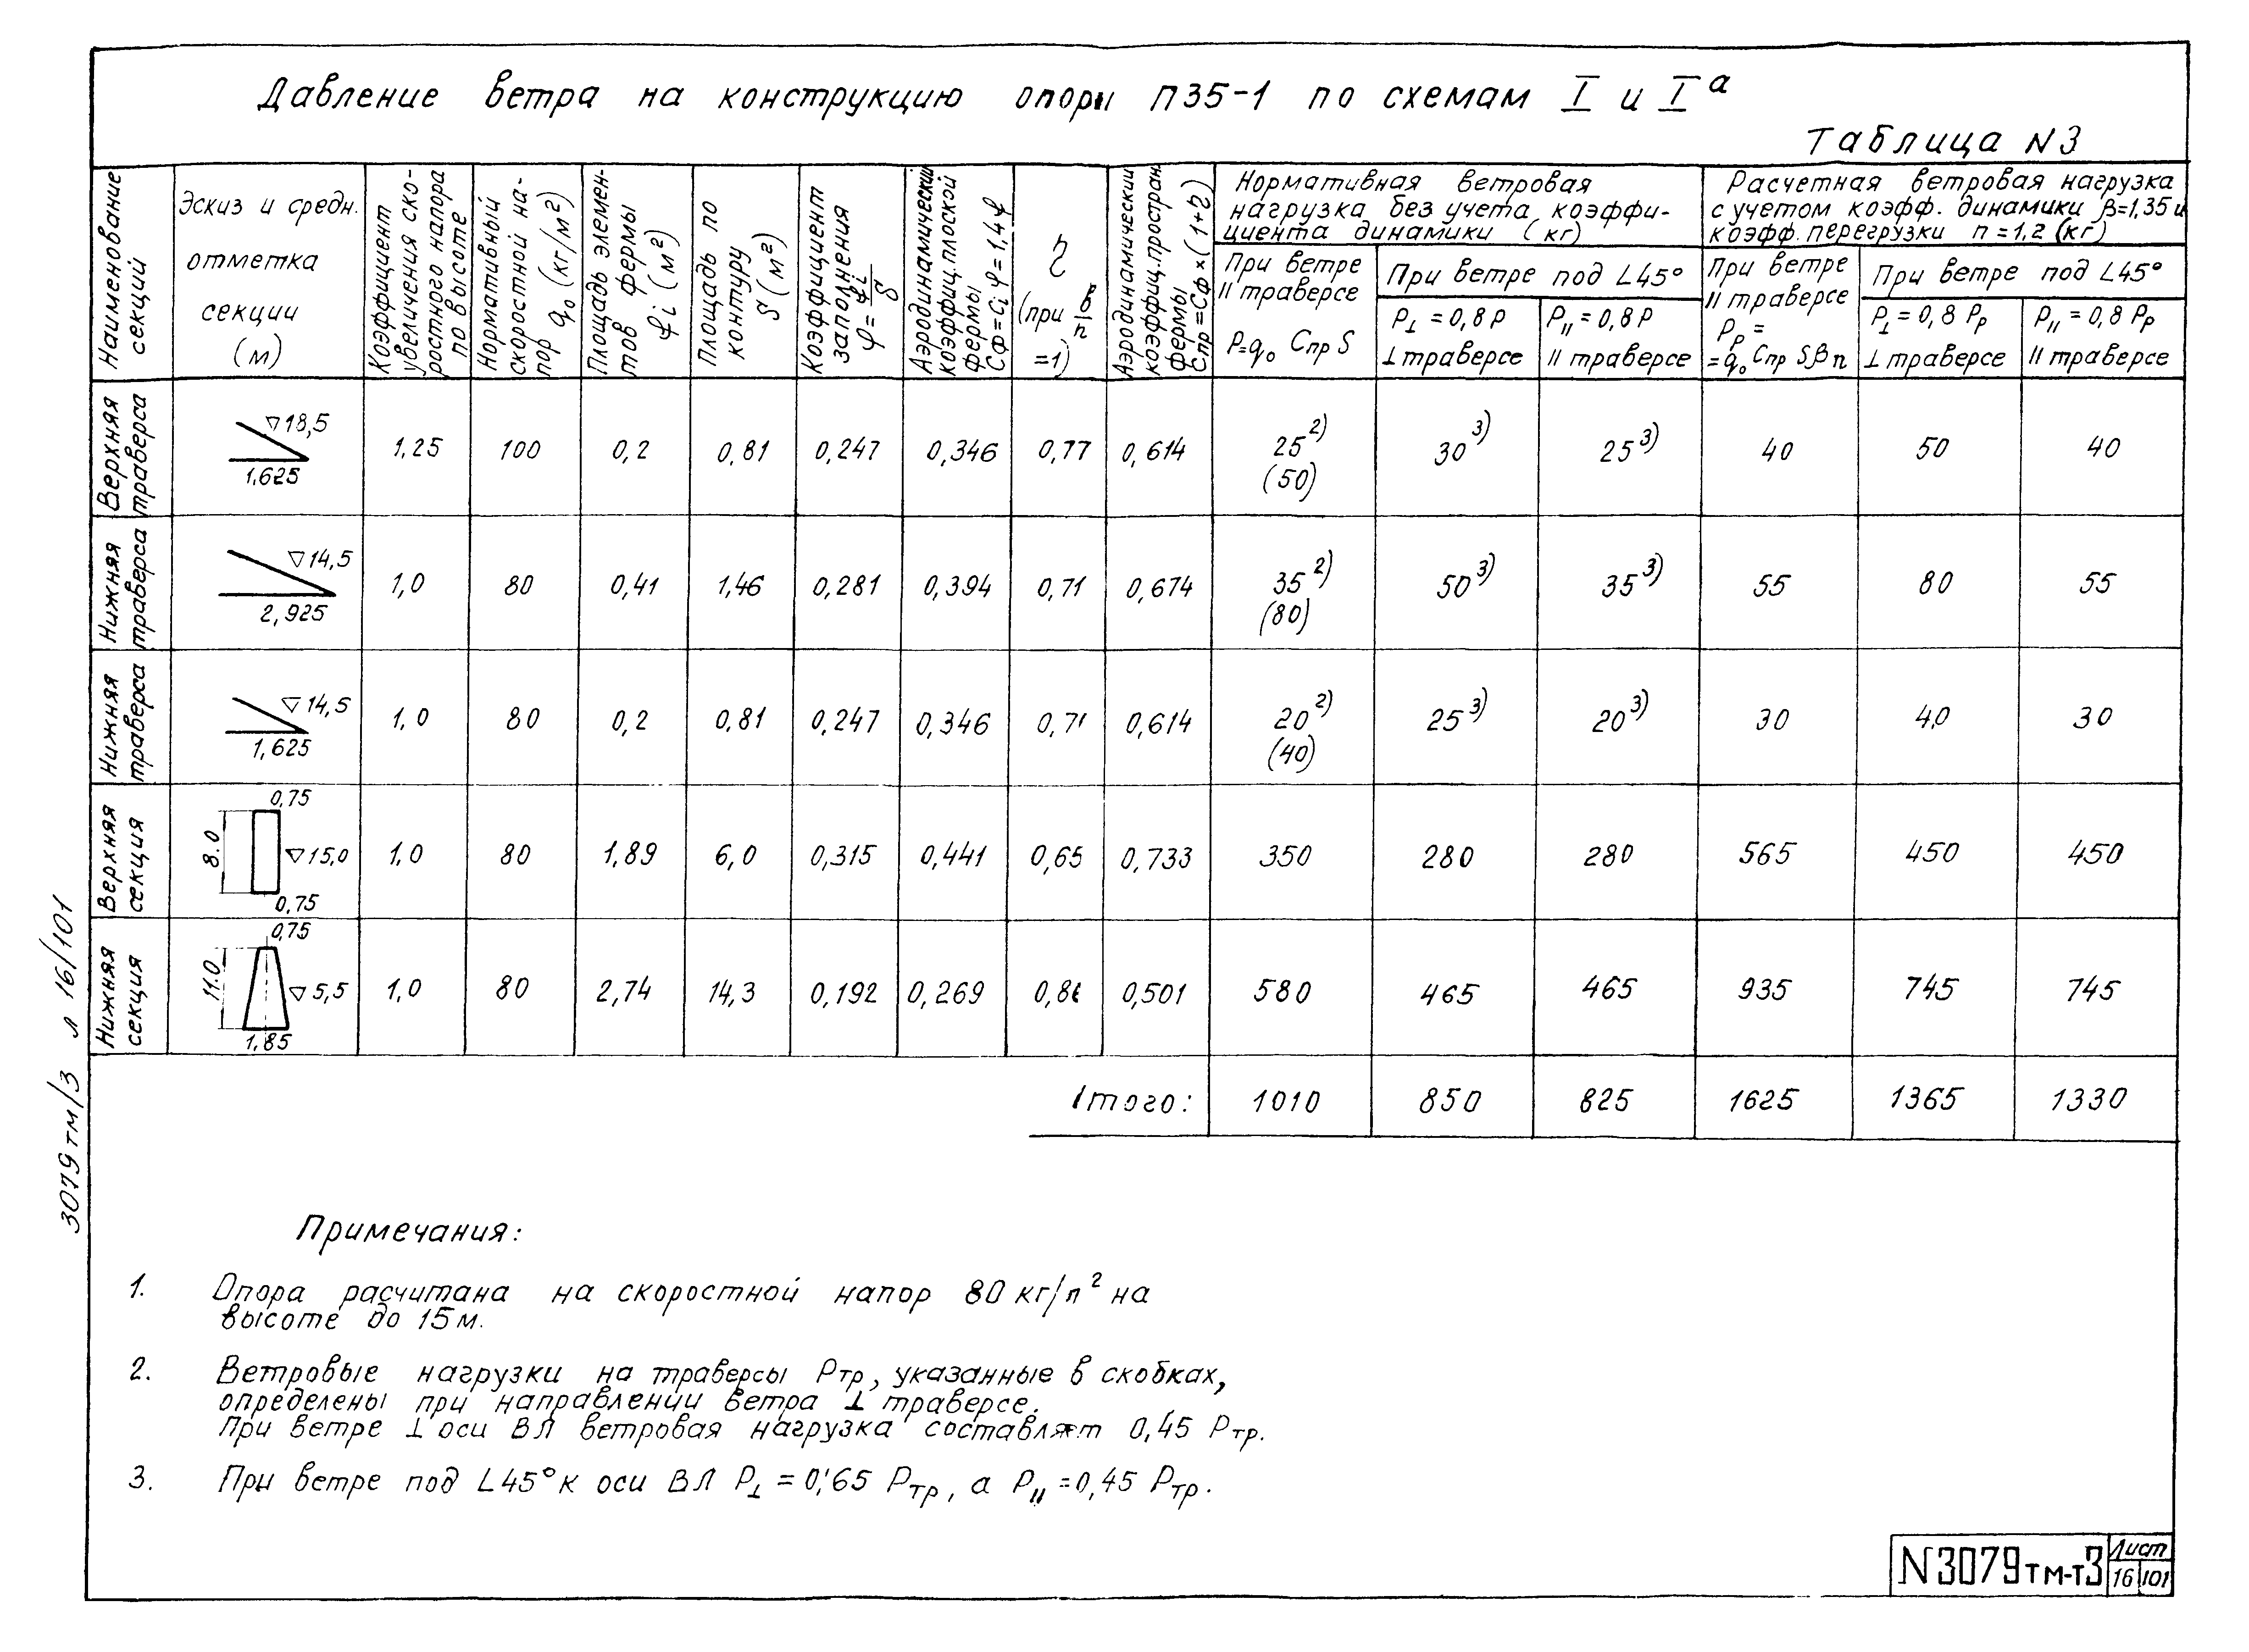 Давление ветра на конструкцию опоры П35-1 по схемам I и Iа
Таблица N3
Наименование секций
Эскиз и средн. отметка секции (м)
Коэффициент увеличения скоростного напора по высоте
Нормативный скоростной напор q₀ (кг/м²)
Площадь элементов фермы fi (м²)
Площадь по контуру S (м²)
Коэффициент заполнения φ = fi/S
Аэродинамический коэффиц. плоской фермы Сф = Сi φ = 1,4φ
η (при в/h = 1)
Аэродинамический коэффиц. простран. фермы Спр = Сф × (1+η)
Нормативная ветровая
нагрузка без учета коэффи-
циента динамики (кг)
При ветре II траверсе P=q₀ Спр S
При ветре под L45°
P⊥ = 0,8P ⊥ траверсе
PII = 0,8P II траверсе
Расчетная ветровая нагрузка
с учетом коэфф. динамики β=1,35 и
коэфф. перегрузки n = 1,2 (кг)
При ветре II траверсе Pр = = q₀ Спр Sβn
При ветре под L45°
P⊥ = 0,8 Pр ⊥ траверсе
PII = 0,8 Pр II траверсе
Верхняя траверса ▽18,5 1,625 1,25 100 0,2 0,81 0,247 0,346 0,77 0,614 25²⁾ (50) 30³⁾ 25³⁾ 40 50 40
Нижняя траверса ▽14,5 2,925 1,0 80 0,41 1,46 0,281 0,394 0,71 0,674 35²⁾ (80) 50³⁾ 35³⁾ 55 80 55
Нижняя траверса ▽14,5 1,625 1,0 80 0,2 0,81 0,247 0,346 0,71 0,614 20²⁾ (40) 25³⁾ 20³⁾ 30 40 30
Верхняя секция 0,75 8.0 ▽15,0 0,75 1,0 80 1,89 6,0 0,315 0,441 0,65 0,733 350 280 280 565 450 450
Нижняя секция 0,75 11.0 ▽5,5 1,85 1,0 80 2,74 14,3 0,192 0,269 0,501 580 465 465 935 745 745
Итого: 1010 850 825 1625 1365 1330
Примечания:
1. Опора расчитана на скоростной напор 80 кг/м² на
высоте до 15 м.
2. Ветровые нагрузки на траверсы Pтр, указанные в скобках,
определены при направлении ветра ⊥ траверсе.
При ветре ⊥ оси ВЛ ветровая нагрузка составляет 0,45 Pтр.
3. При ветре под L45° к оси ВЛ P⊥ = 0,65 Pтр, а PII = 0,45 Pтр.
3079тм/3 л 16/101
N3079тм-т3
Лист
16 101